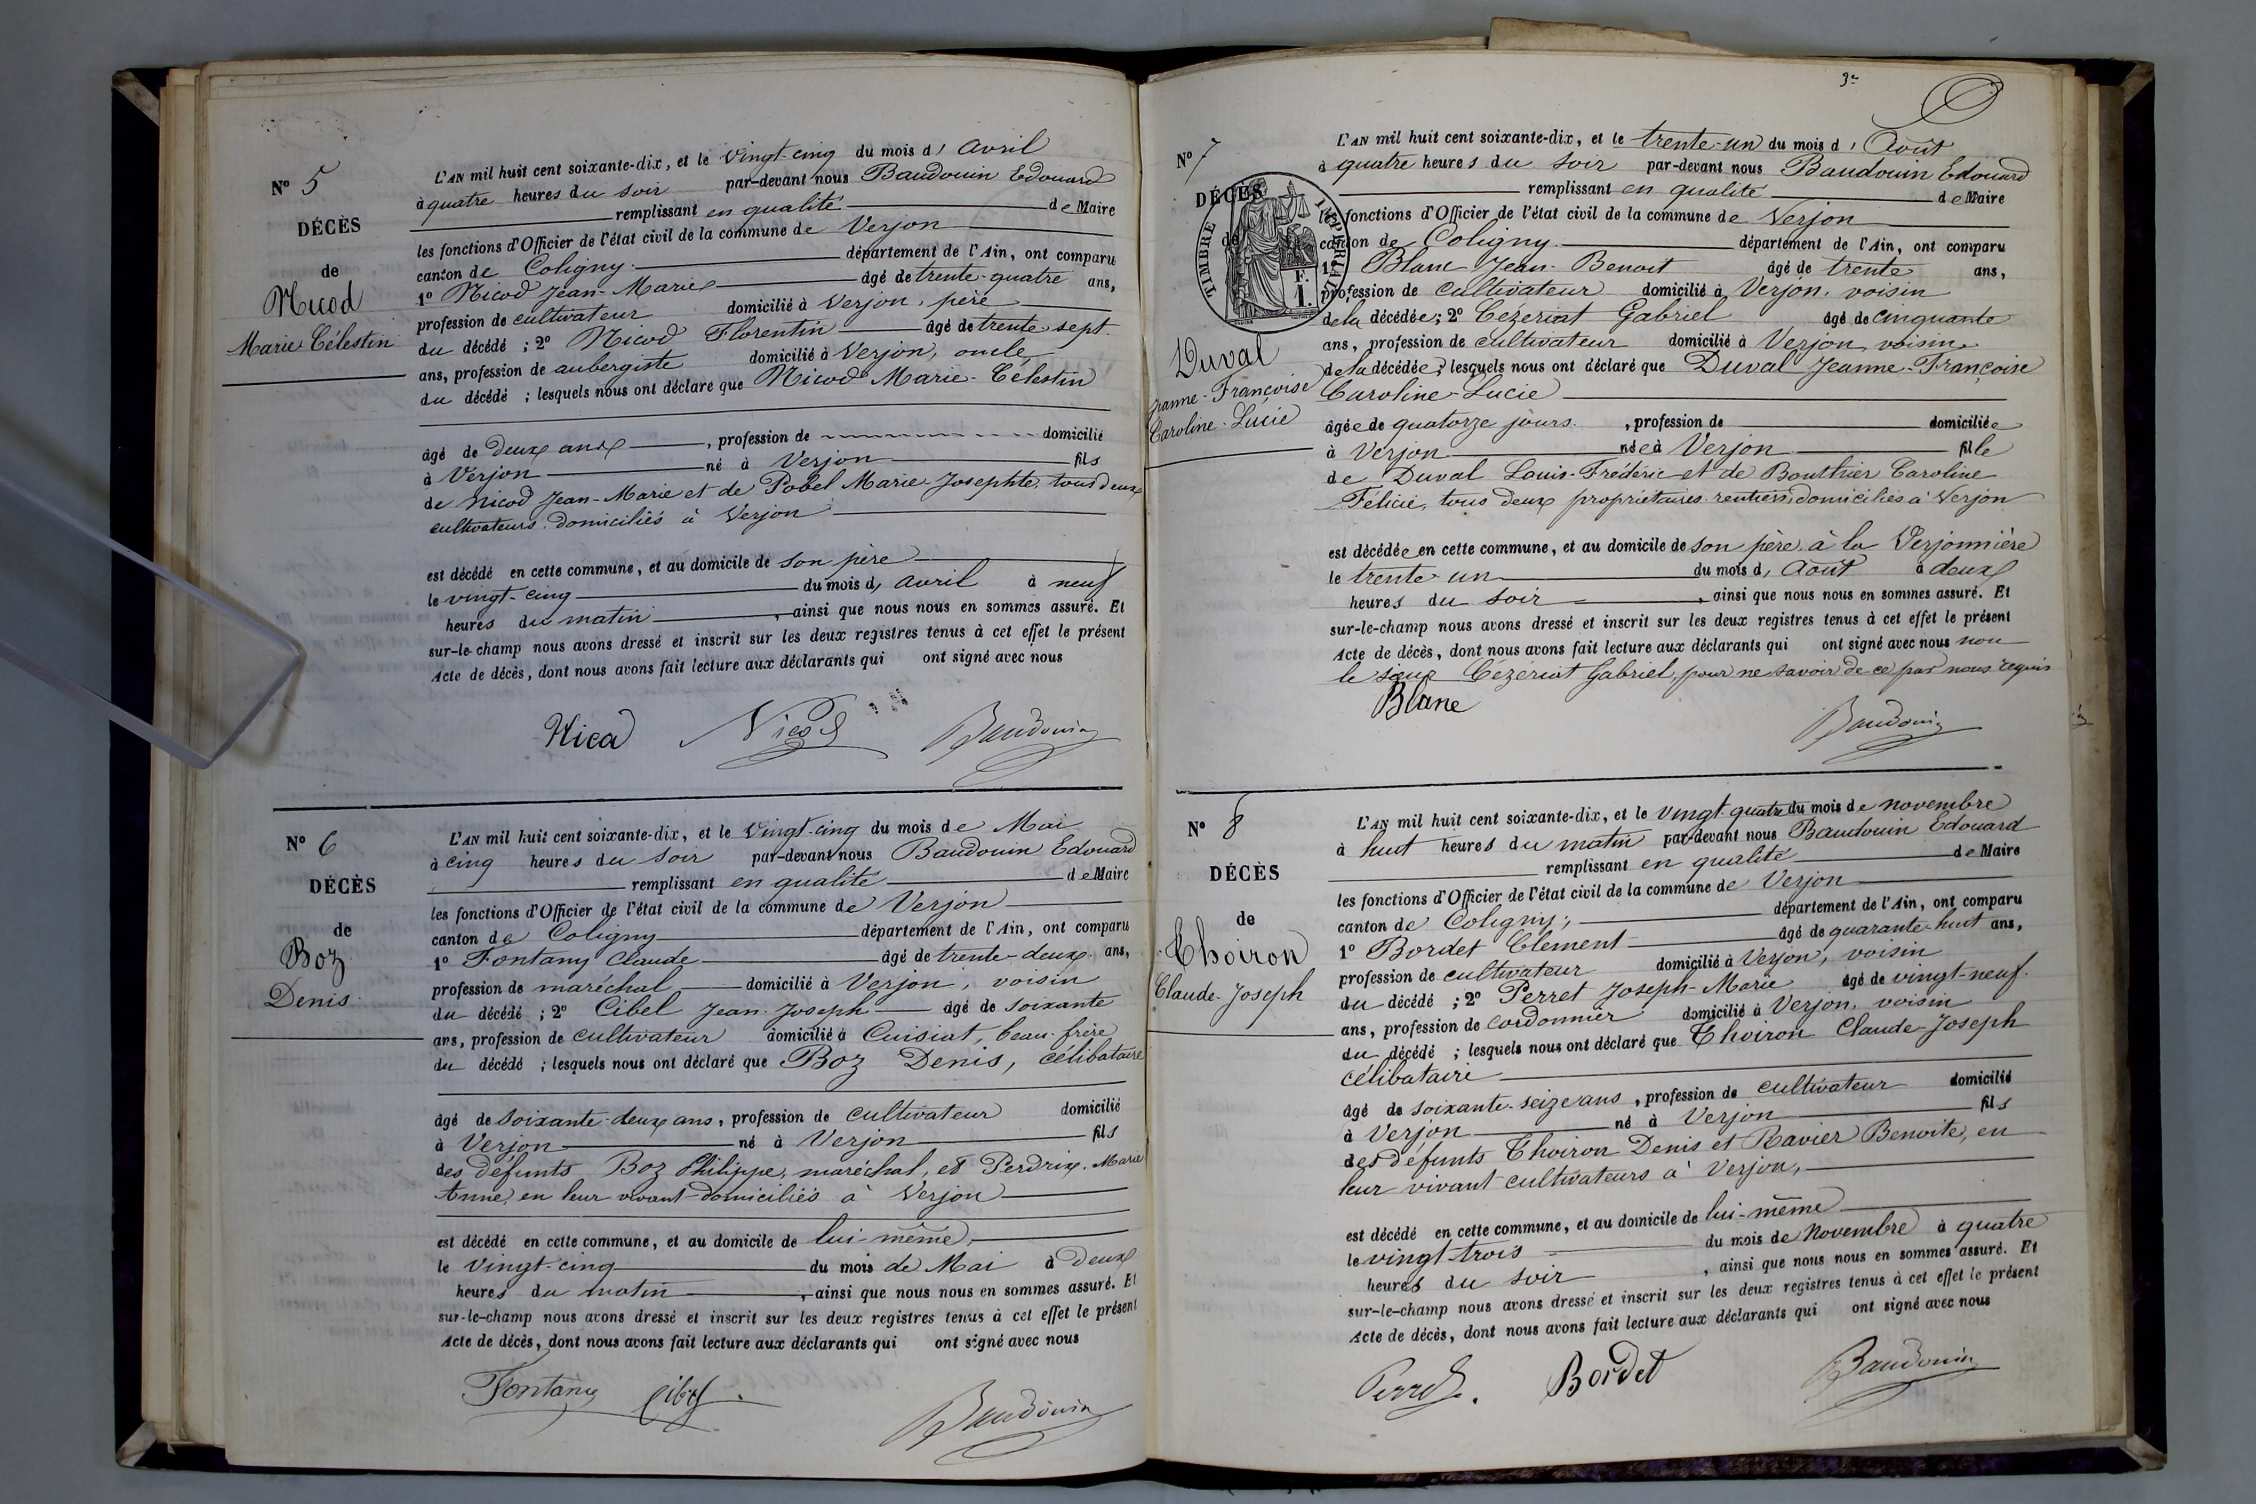 Nº 5
DÉCÈS
de
Nicod
Marie Célestin
L'AN mil huit cent soixante-dix, et le vingt-cinq du mois d'avril
à quatre heures du soir par-devant nous Baudouin Edouard
remplissant en qualité de Maire
les fonctions d'Officier de l'état civil de la commune de Verjon
canton de Coligny département de l'Ain, ont comparu
1º Nicod Jean-Marie âgé de trente-quatre ans,
profession de cultivateur domicilié à Verjon, père
du décédé ; 2º Nicod Florentin âgé de trente sept
ans, profession de aubergiste domicilié à Verjon, oncle
du décédé ; lesquels nous ont déclaré que Nicod Marie-Célestin
âgé de deux ans, profession de domicilié
à Verjon né à Verjon fils
de Nicod Jean-Marie et de Pobel Marie Josephte, tous deux
cultivateurs domiciliés à Verjon
est décédé en cette commune, et au domicile de son père
le vingt-cinq du mois d'avril à neuf
heures du matin, ainsi que nous nous en sommes assuré. Et
sur-le-champ nous avons dressé et inscrit sur les deux registres tenus à cet effet le présent
Acte de décès, dont nous avons fait lecture aux déclarants qui ont signé avec nous
Nicod Nicod Baudouin
Nº 6
DÉCÈS
de
Boz
Denis
L'AN mil huit cent soixante-dix, et le vingt-cinq du mois de Mai
à cinq heures du soir par-devant nous Baudouin Edouard
remplissant en qualité de Maire
les fonctions d'Officier de l'état civil de la commune de Verjon
canton de Coligny département de l'Ain, ont comparu
1º Fontany Claude âgé de trente-deux ans,
profession de maréchal domicilié à Verjon, voisin
du décédé ; 2º Cibel Jean-Joseph âgé de soixante
ans, profession de cultivateur domicilié à Cuisiat, beau-frère
du décédé ; lesquels nous ont déclaré que Boz Denis, célibataire
âgé de soixante-deux ans, profession de cultivateur domicilié
à Verjon né à Verjon fils
des défunts Boz Philippe, maréchal, et Perdrix Marie
Anne, en leur vivant domiciliés à Verjon
est décédé en cette commune, et au domicile de lui-même,
le vingt-cinq du mois de Mai à deux
heures du matin, ainsi que nous nous en sommes assuré. Et
sur-le-champ nous avons dressé et inscrit sur les deux registres tenus à cet effet le présent
Acte de décès, dont nous avons fait lecture aux déclarants qui ont signé avec nous
Fontany Cibel Baudouin
Nº 7
DÉCÈS
de
TIMBRE IMPERIAL
F.
1.
Duval
Jeanne-Françoise
Caroline-Lucie
L'AN mil huit cent soixante-dix, et le trente-un du mois d'Août
à quatre heures du soir par-devant nous Baudouin Edouard
remplissant en qualité de Maire
les fonctions d'Officier de l'état civil de la commune de Verjon
canton de Coligny département de l'Ain, ont comparu
1º Blanc Jean-Benoit âgé de trente ans,
profession de cultivateur domicilié à Verjon, voisin
de la décédée ; 2º Cezeriat Gabriel âgé de cinquante
ans, profession de cultivateur domicilié à Verjon, voisin
de la décédée ; lesquels nous ont déclaré que Duval Jeanne-Françoise
Caroline-Lucie
âgée de quatorze jours, profession de domiciliée
à Verjon née à Verjon fille
de Duval Louis-Frédéric et de Bouthier Caroline
Félicie, tous deux propriétaires rentiers domiciliés à Verjon
est décédée en cette commune, et au domicile de son père à la Verjonnière
le trente-un du mois d'Août à deux
heures du soir, ainsi que nous nous en sommes assuré. Et
sur-le-champ nous avons dressé et inscrit sur les deux registres tenus à cet effet le présent
Acte de décès, dont nous avons fait lecture aux déclarants qui ont signé avec nous non
le sieur Cézériat Gabriel, pour ne savoir de ce par nous requis
Blanc Baudouin
Nº 8
DÉCÈS
de
Thoiron
Claude-Joseph
L'AN mil huit cent soixante-dix, et le vingt-quatre du mois de novembre
à huit heures du matin par-devant nous Baudouin Edouard
remplissant en qualité de Maire
les fonctions d'Officier de l'état civil de la commune de Verjon
canton de Coligny, département de l'Ain, ont comparu
1º Bordet Clément âgé de quarante-huit ans,
profession de cultivateur domicilié à Verjon, voisin
du décédé ; 2º Perret Joseph-Marie âgé de vingt-neuf
ans, profession de cordonnier domicilié à Verjon, voisin
du décédé ; lesquels nous ont déclaré que Thoiron Claude-Joseph
célibataire
âgé de soixante-seize ans, profession de cultivateur domicilié
à Verjon né à Verjon fils
des défunts Thoiron Denis et Ravier Benoite, en
leur vivant cultivateurs à Verjon,
est décédé en cette commune, et au domicile de lui-même
le vingt-trois du mois de Novembre à quatre
heures du soir, ainsi que nous nous en sommes assuré. Et
sur-le-champ nous avons dressé et inscrit sur les deux registres tenus à cet effet le présent
Acte de décès, dont nous avons fait lecture aux déclarants qui ont signé avec nous
Perret Bordet Baudouin